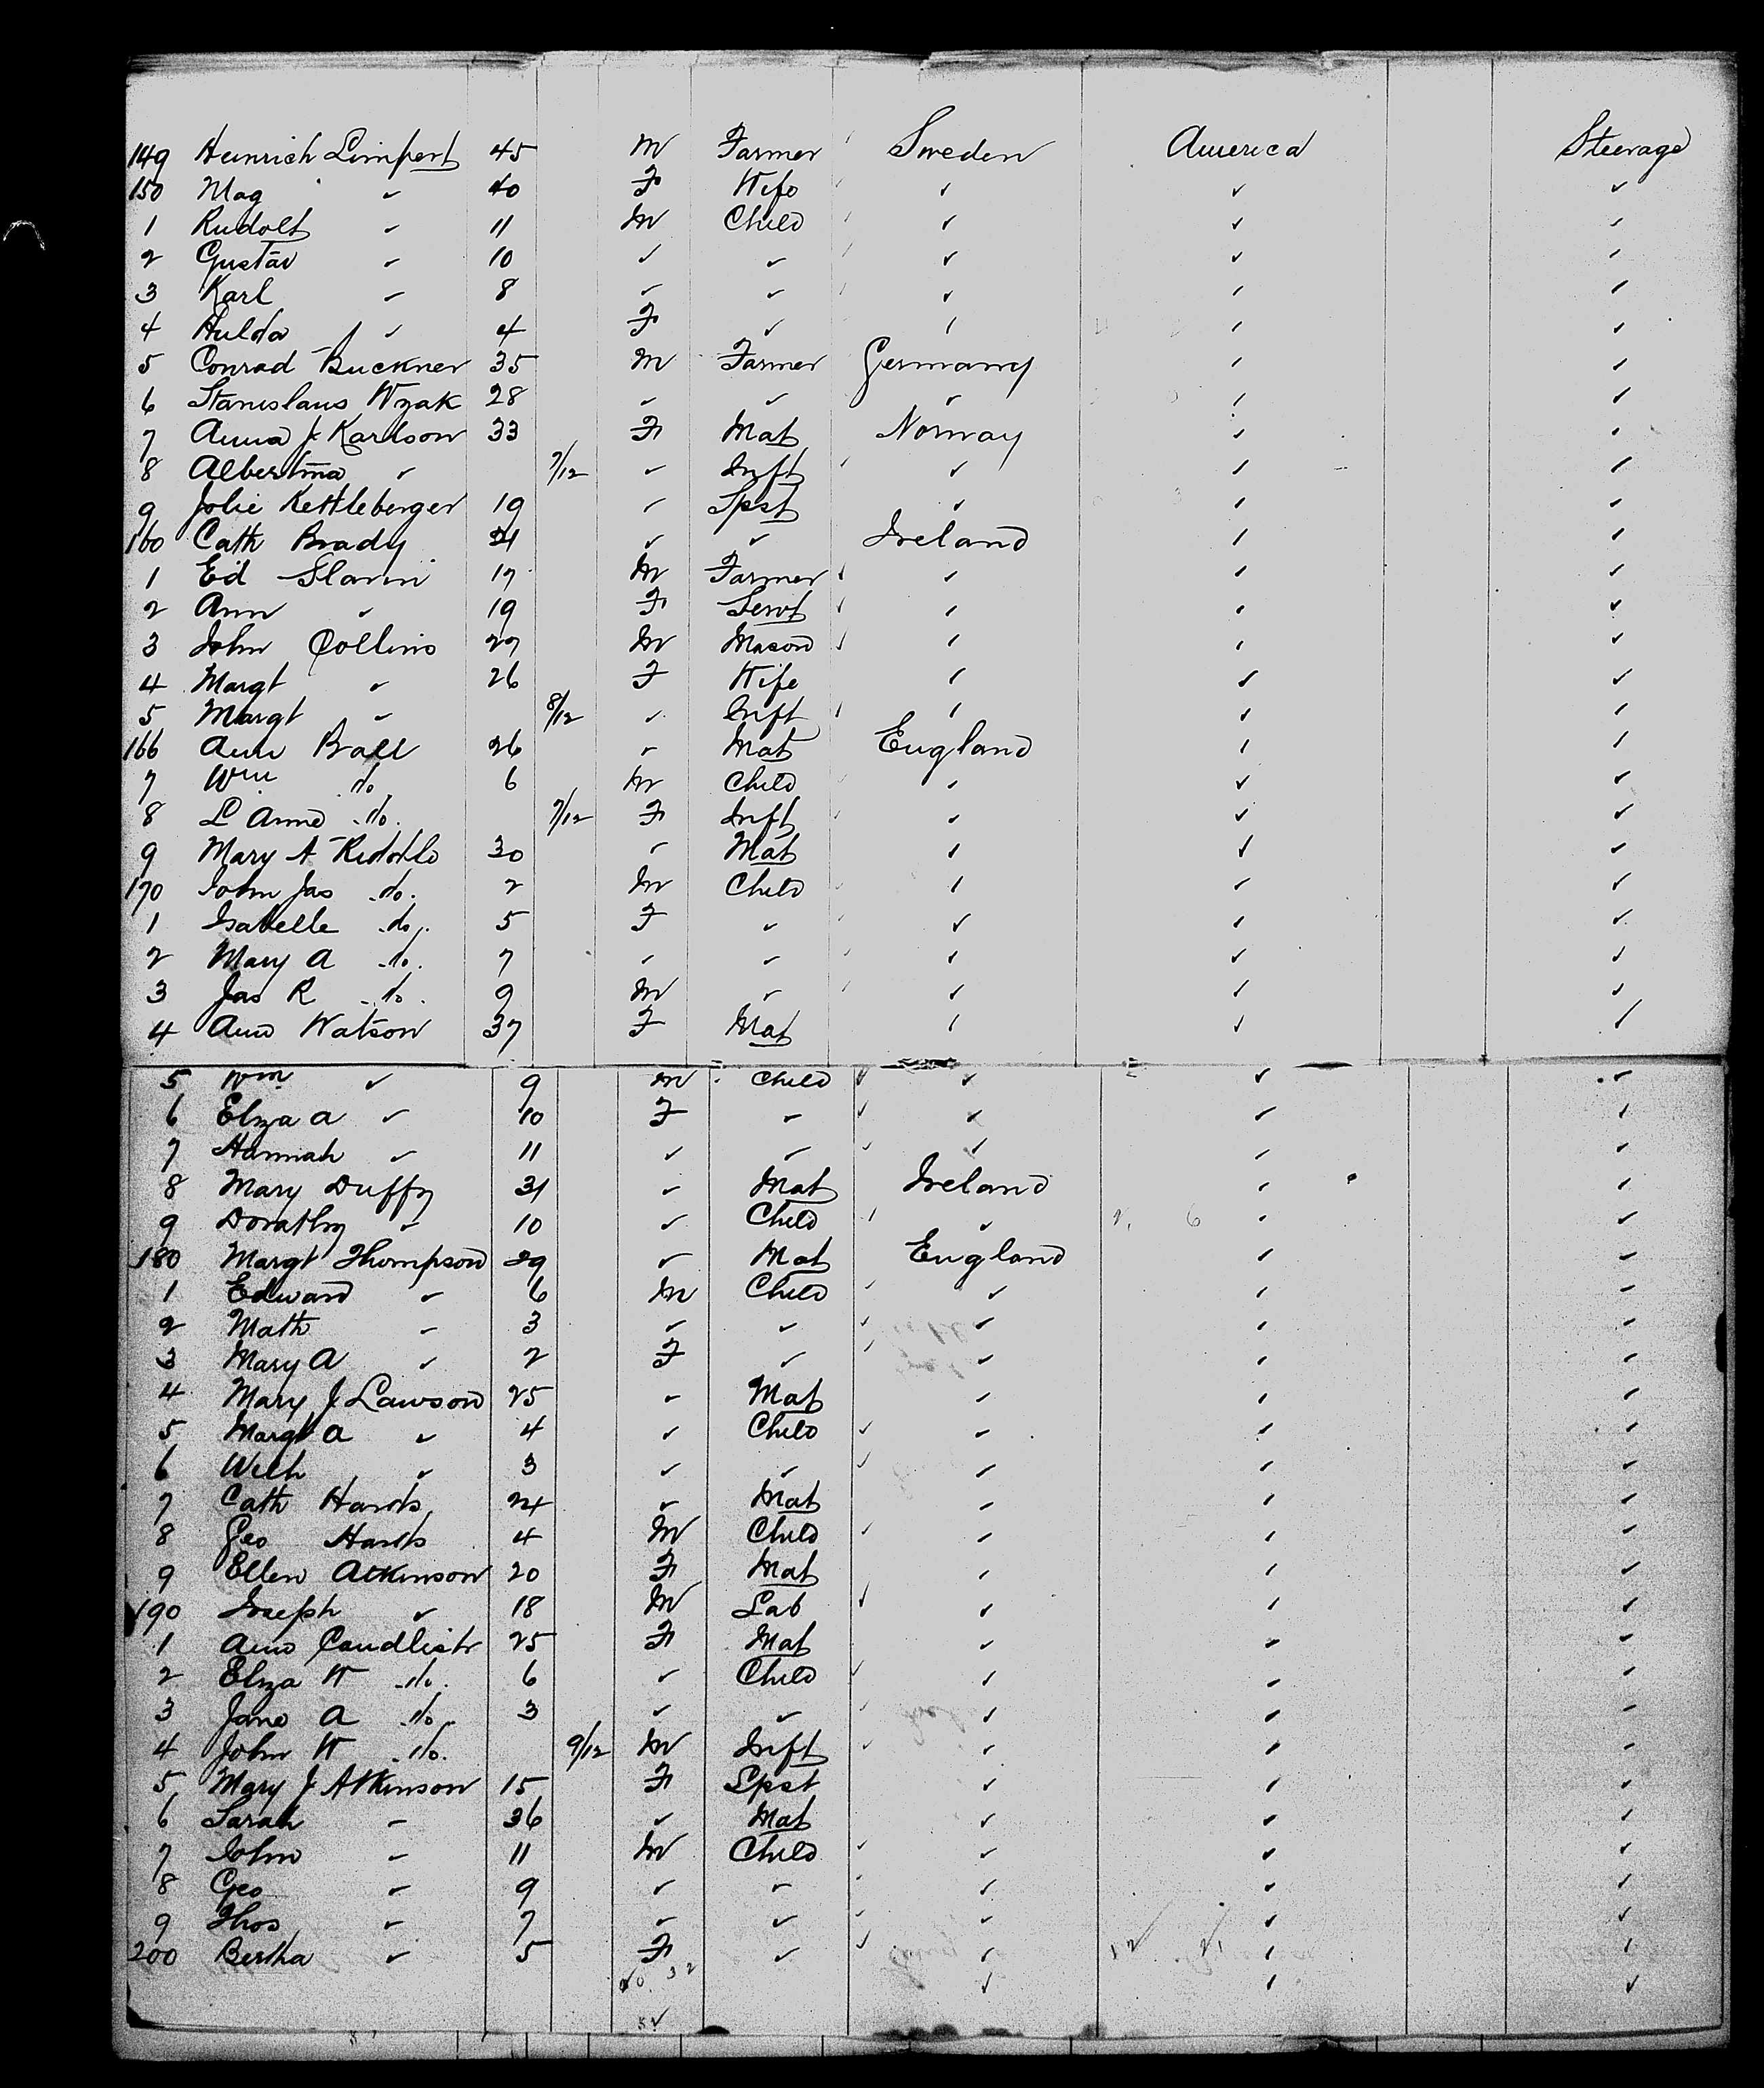 149 Heinrich Limpert 45 M Farmer Sweden America Steerage
150 Mag ✓ 40 F Wife ✓ ✓ ✓
1 Rudolf ✓ 11 M Child ✓ ✓ ✓
2 Gustav ✓ 10 ✓ ✓ ✓ ✓ ✓
3 Karl ✓ 8 ✓ ✓ ✓ ✓ ✓
4 Hulda ✓ 4 F ✓ ✓ ✓ ✓
5 Conrad Buckner 35 M Farmer Germany ✓ ✓
6 Stanislaus Wzak 28 ✓ ✓ ✓ ✓ ✓
7 Anna J Karlson 33 F Mat Norway ✓ ✓
8 Albertina ✓ 7/12 ✓ Inft ✓ ✓ ✓
9 Jolie Kettleberger 19 ✓ Spst ✓ ✓ ✓
160 Cath Brady 21 ✓ ✓ Ireland ✓ ✓
1 Ed Slavin 17 M Farmer ✓ ✓ ✓
2 Ann ✓ 19 F Servt ✓ ✓ ✓
3 John Collins 27 M Mason ✓ ✓ ✓
4 Margt ✓ 26 F Wife ✓ ✓ ✓
5 Margt ✓ 8/12 ✓ Inft ✓ ✓ ✓
166 Ann Ball 26 ✓ Mat England ✓ ✓
7 Wm do 6 M Child ✓ ✓ ✓
8 L Anna do. 7/12 F Inft ✓ ✓ ✓
9 Mary A Riddle 30 ✓ Mat ✓ ✓ ✓
170 John Jas do. 2 M Child ✓ ✓ ✓
1 Isabelle do. 5 F ✓ ✓ ✓ ✓
2 Mary A do. 7 ✓ ✓ ✓ ✓ ✓
3 Jas R do. 9 M ✓ ✓ ✓ ✓
4 Ann Watson 37 F Mat ✓ ✓ ✓
5 Wm ✓ 9 M Child ✓ ✓ ✓
6 Eliza A ✓ 10 F ✓ ✓ ✓ ✓
7 Hannah ✓ 11 ✓ ✓ ✓ ✓ ✓
8 Mary Duffy 31 ✓ Mat Ireland ✓ ✓
9 Dorathy ✓ 10 ✓ Child ✓ ✓ ✓
180 Margt Thompson 29 ✓ Mat England ✓ ✓
1 Edward ✓ 6 M Child ✓ ✓ ✓
2 Math ✓ 3 ✓ ✓ ✓ ✓ ✓
3 Mary A ✓ 2 F ✓ ✓ ✓ ✓
4 Mary J Lawson 25 ✓ Mat ✓ ✓ ✓
5 Margt A ✓ 4 ✓ Child ✓ ✓ ✓
6 ✓ 3 ✓ ✓ ✓ ✓ ✓
7 Cath 24 ✓ Mat ✓ ✓ ✓
8 Geo 4 M Child ✓ ✓ ✓
9 Ellen Atkinson 20 F Mat ✓ ✓ ✓
190 Joseph ✓ 18 M Lab ✓ ✓ ✓
1 Ann Candlish 25 F Mat ✓ ✓ ✓
2 Eliza W do. 6 ✓ Child ✓ ✓ ✓
3 Jane A do. 3 ✓ ✓ ✓ ✓ ✓
4 John W do. 9/12 M Inft ✓ ✓ ✓
5 Mary J Atkinson 15 F Spst ✓ ✓ ✓
6 Sarah ✓ 36 ✓ Mat ✓ ✓ ✓
7 John ✓ 11 M Child ✓ ✓ ✓
8 Geo ✓ 9 ✓ ✓ ✓ ✓ ✓
9 Thos ✓ 7 ✓ ✓ ✓ ✓ ✓
200 Bertha ✓ 5 F ✓ ✓ ✓ ✓